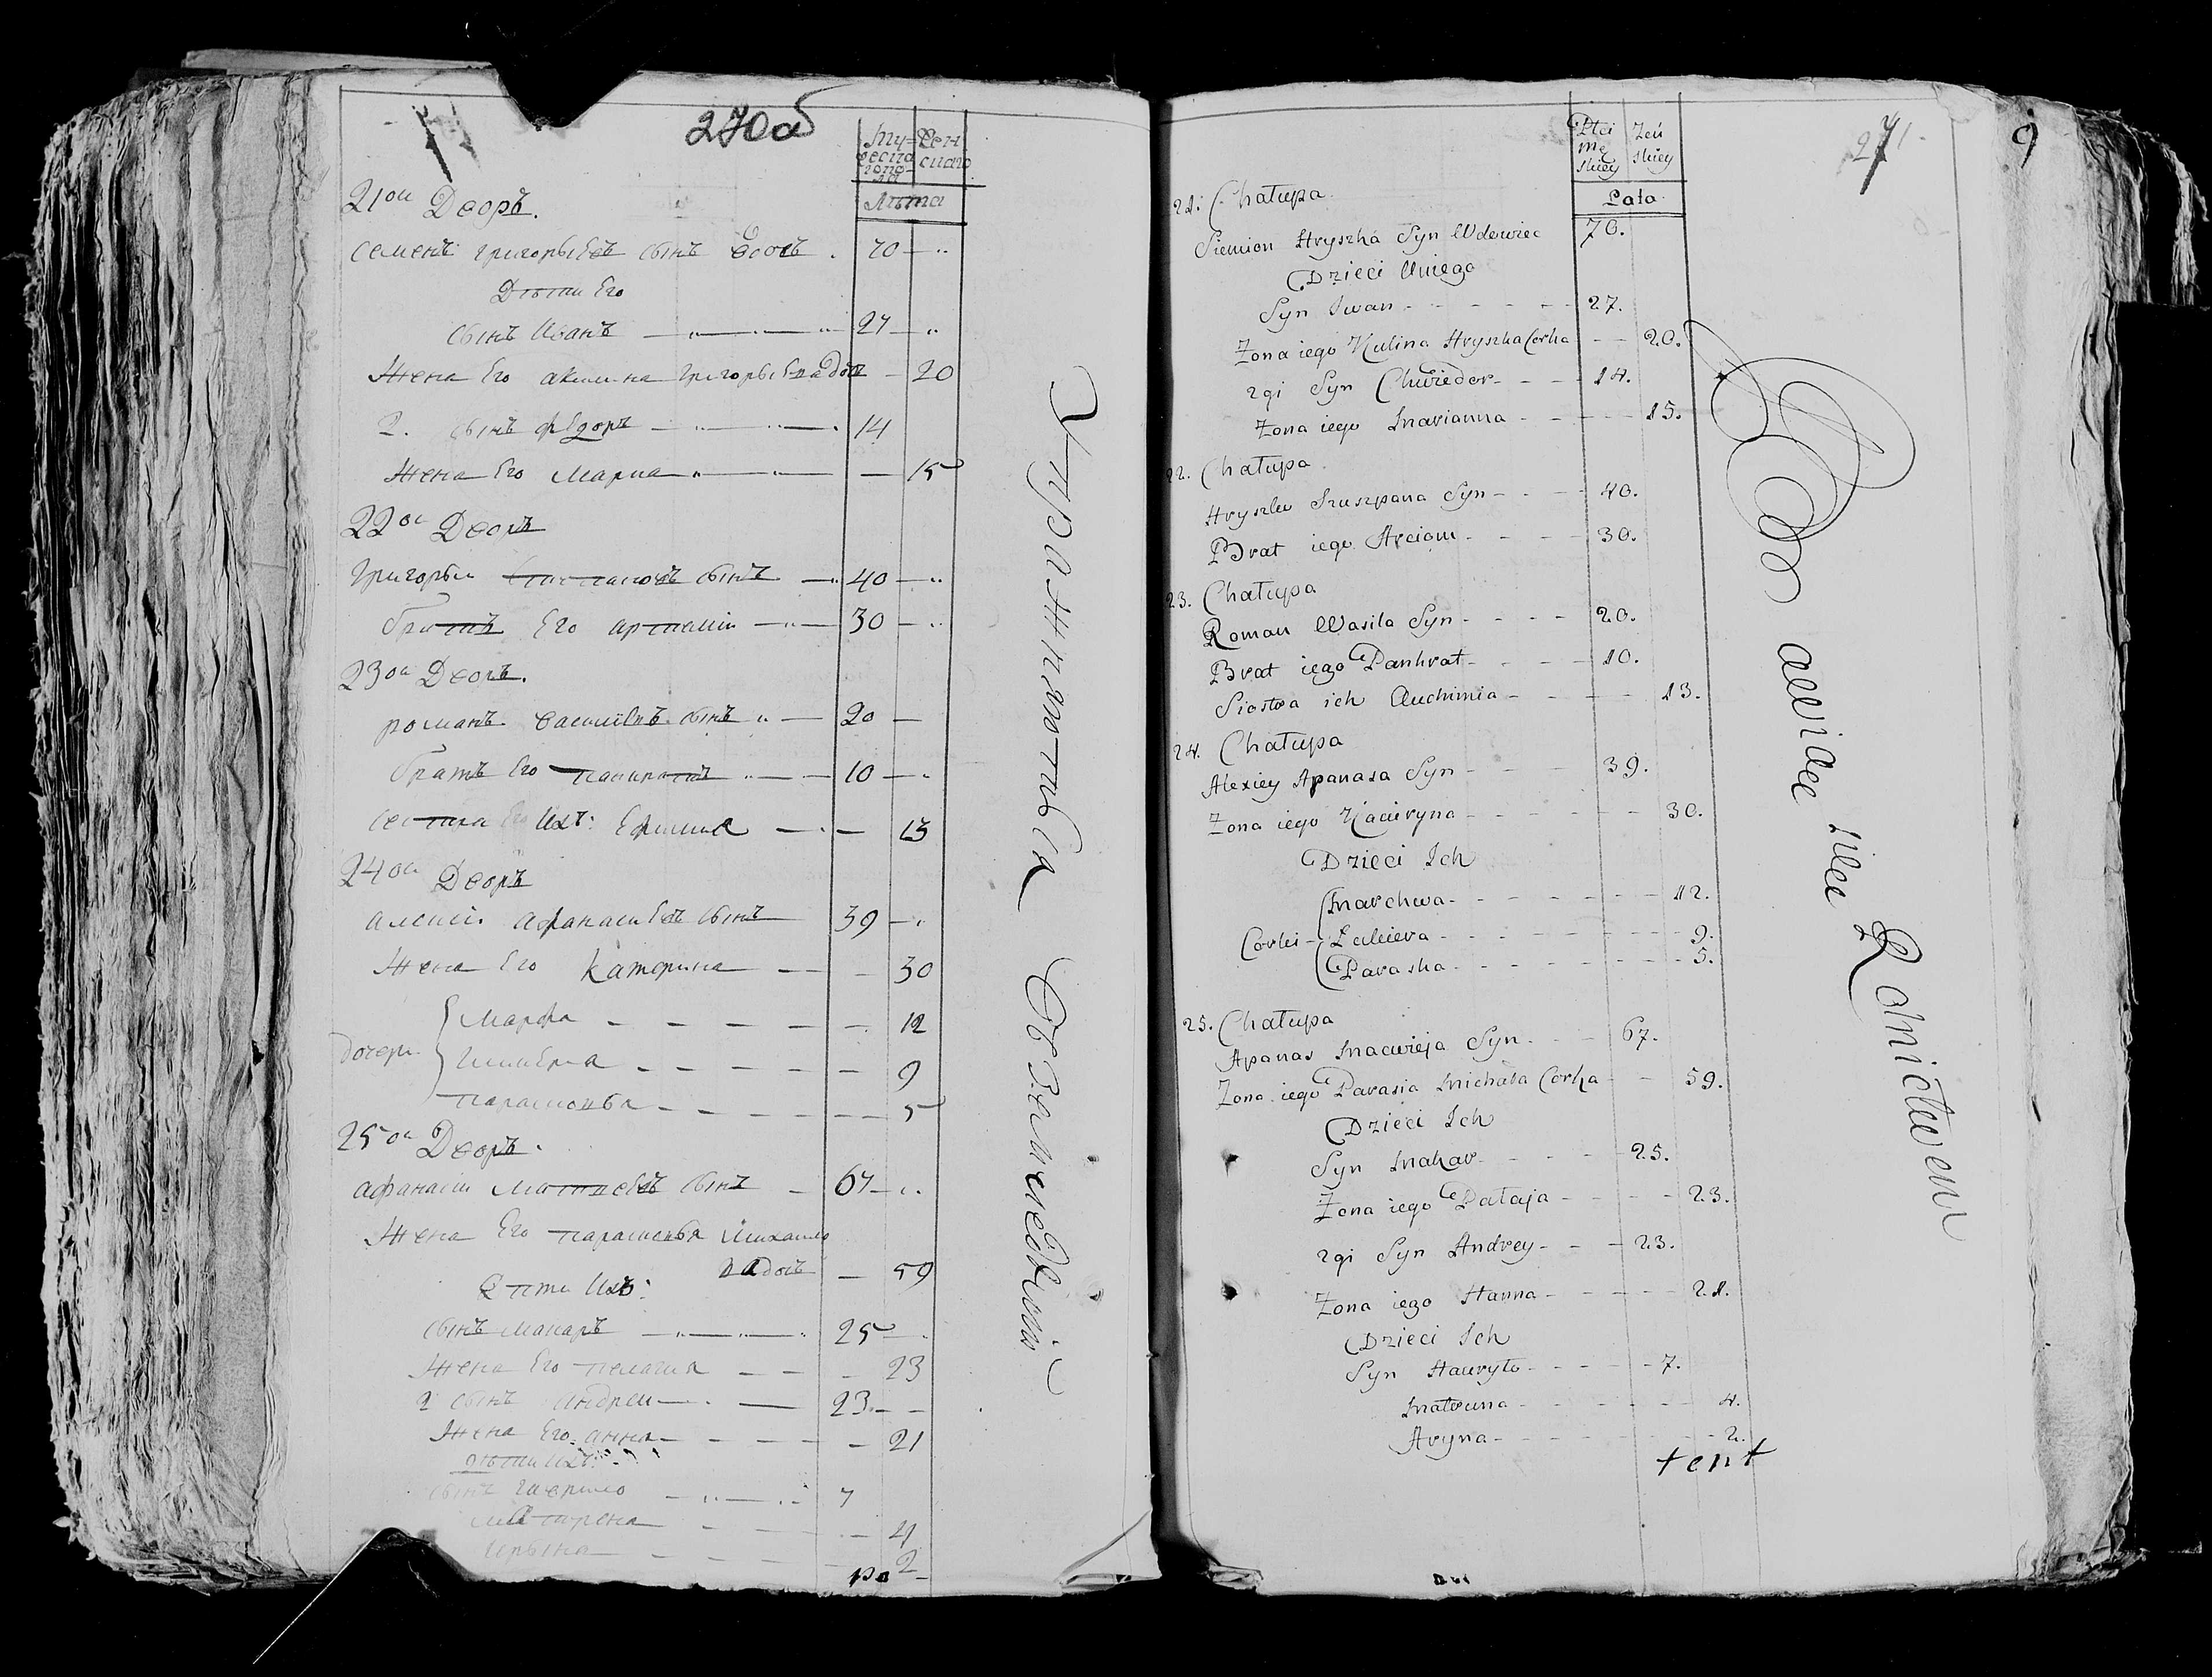 270об
Му= Жен
ческа скаго
го по=
ла
Лѣта
21ои Дворъ.
Семенъ Григорьевъ сынъ вдовъ . 70
Дѣти Его
сынъ Иванъ 27
Жена Его акилина Григорьева дочь 20
2. сынъ федоръ 14
Жена Его Мариа 15
22ои Дворъ
Григорьи Степановъ сынъ 40
братъ Его артемии 30
23ои Дворъ.
романъ васильевъ сынъ 20
братъ Его панкратъ 10
сестра Ихъ: Ефимиа 13
24ои Дворъ
алексеи афанасьевъ сынъ 39
Жена Его Катерина 30
Марфа 12
дочери Гликерia 9
парасковья 5
25ои Дворъ.
афанасии Матвеевъ сынъ 67
Жена Его парасковья Михаило
ва дочь 59
Дѣти Ихъ:
сынъ макаръ 25
Жена Его пелагия 23
2 сынъ андреи 23
Жена Его анна 21
дѣти Ихъ:
сынъ гаврило 7
матрена 4
Ирына 2
Упражняются
Въ Земледѣлiи
271
9
Płci Żeń
mę skiey
skiey
Lata
21. Chałupa
Siemion Hryszka Syn Wdowiec 70.
Dzieci Uniego
Syn Iwan 27.
Żona iego Kulina Hryszka Corka 20.
2gi Syn Chwiedor 14.
Żona iego Maryanna 15.
22. Chałupa
Hryszko Szuszpana Syn 40.
Brat iego Arciom 30.
23. Chałupa
Roman Wasila Syn 20.
Brat iego Pankrat 10.
Siostra ich Auchimia 13.
24. Chałupa
Alexiey Apanasa Syn 39.
Żona iego Kaciryna 30.
Dzieci Ich
Marchwa 12.
Corki Łukiera 9.
Paraska 5.
25. Chałupa
Apanas Macwieja Syn 67.
Żona iego Parasia Michała Corka 59.
Dzieci Ich
Syn Makar 25.
Żona iego Pałaja 23.
2gi Syn Andrey 23.
Żona iego Hanna 21.
Dzieci Ich
Syn Hawryło 7.
Matruna 4.
Aryna 2.
Rolnictwem